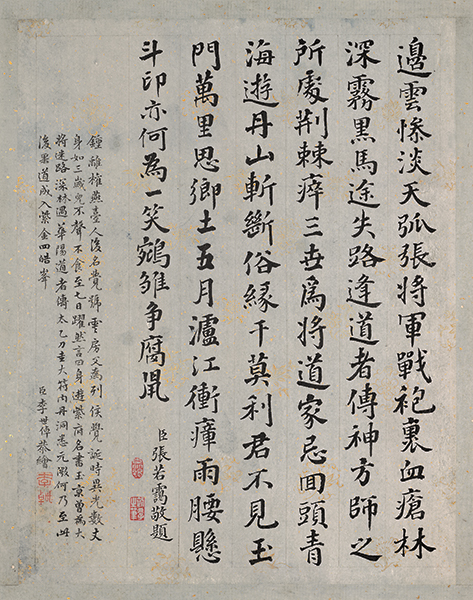 邊雲慘淡天弧張將軍戰袍裏血瘡林
深霧黑馬途失路逢道者傳神方師之
所處荆棘瘁三世爲將道家忌回頭青
海遊丹山斬斷俗緣干莫利君不見玉
門萬里思鄉土五月瀘江衝瘴雨腰懸
斗印亦何為一笑鵷雛争腐鼠
臣張若靄敬題
鍾離權燕臺人後名覺號雲房父為列侯覺誕時異光數丈
身如三歲兒不聲不食至七日躍然言曰身遊紫府名書玉京曽為大
將迷路深林遇華陽道者傳太乙刀圭火符内丹洞悉元
後果道成入紫金四皓峯
臣李世倬恭繪